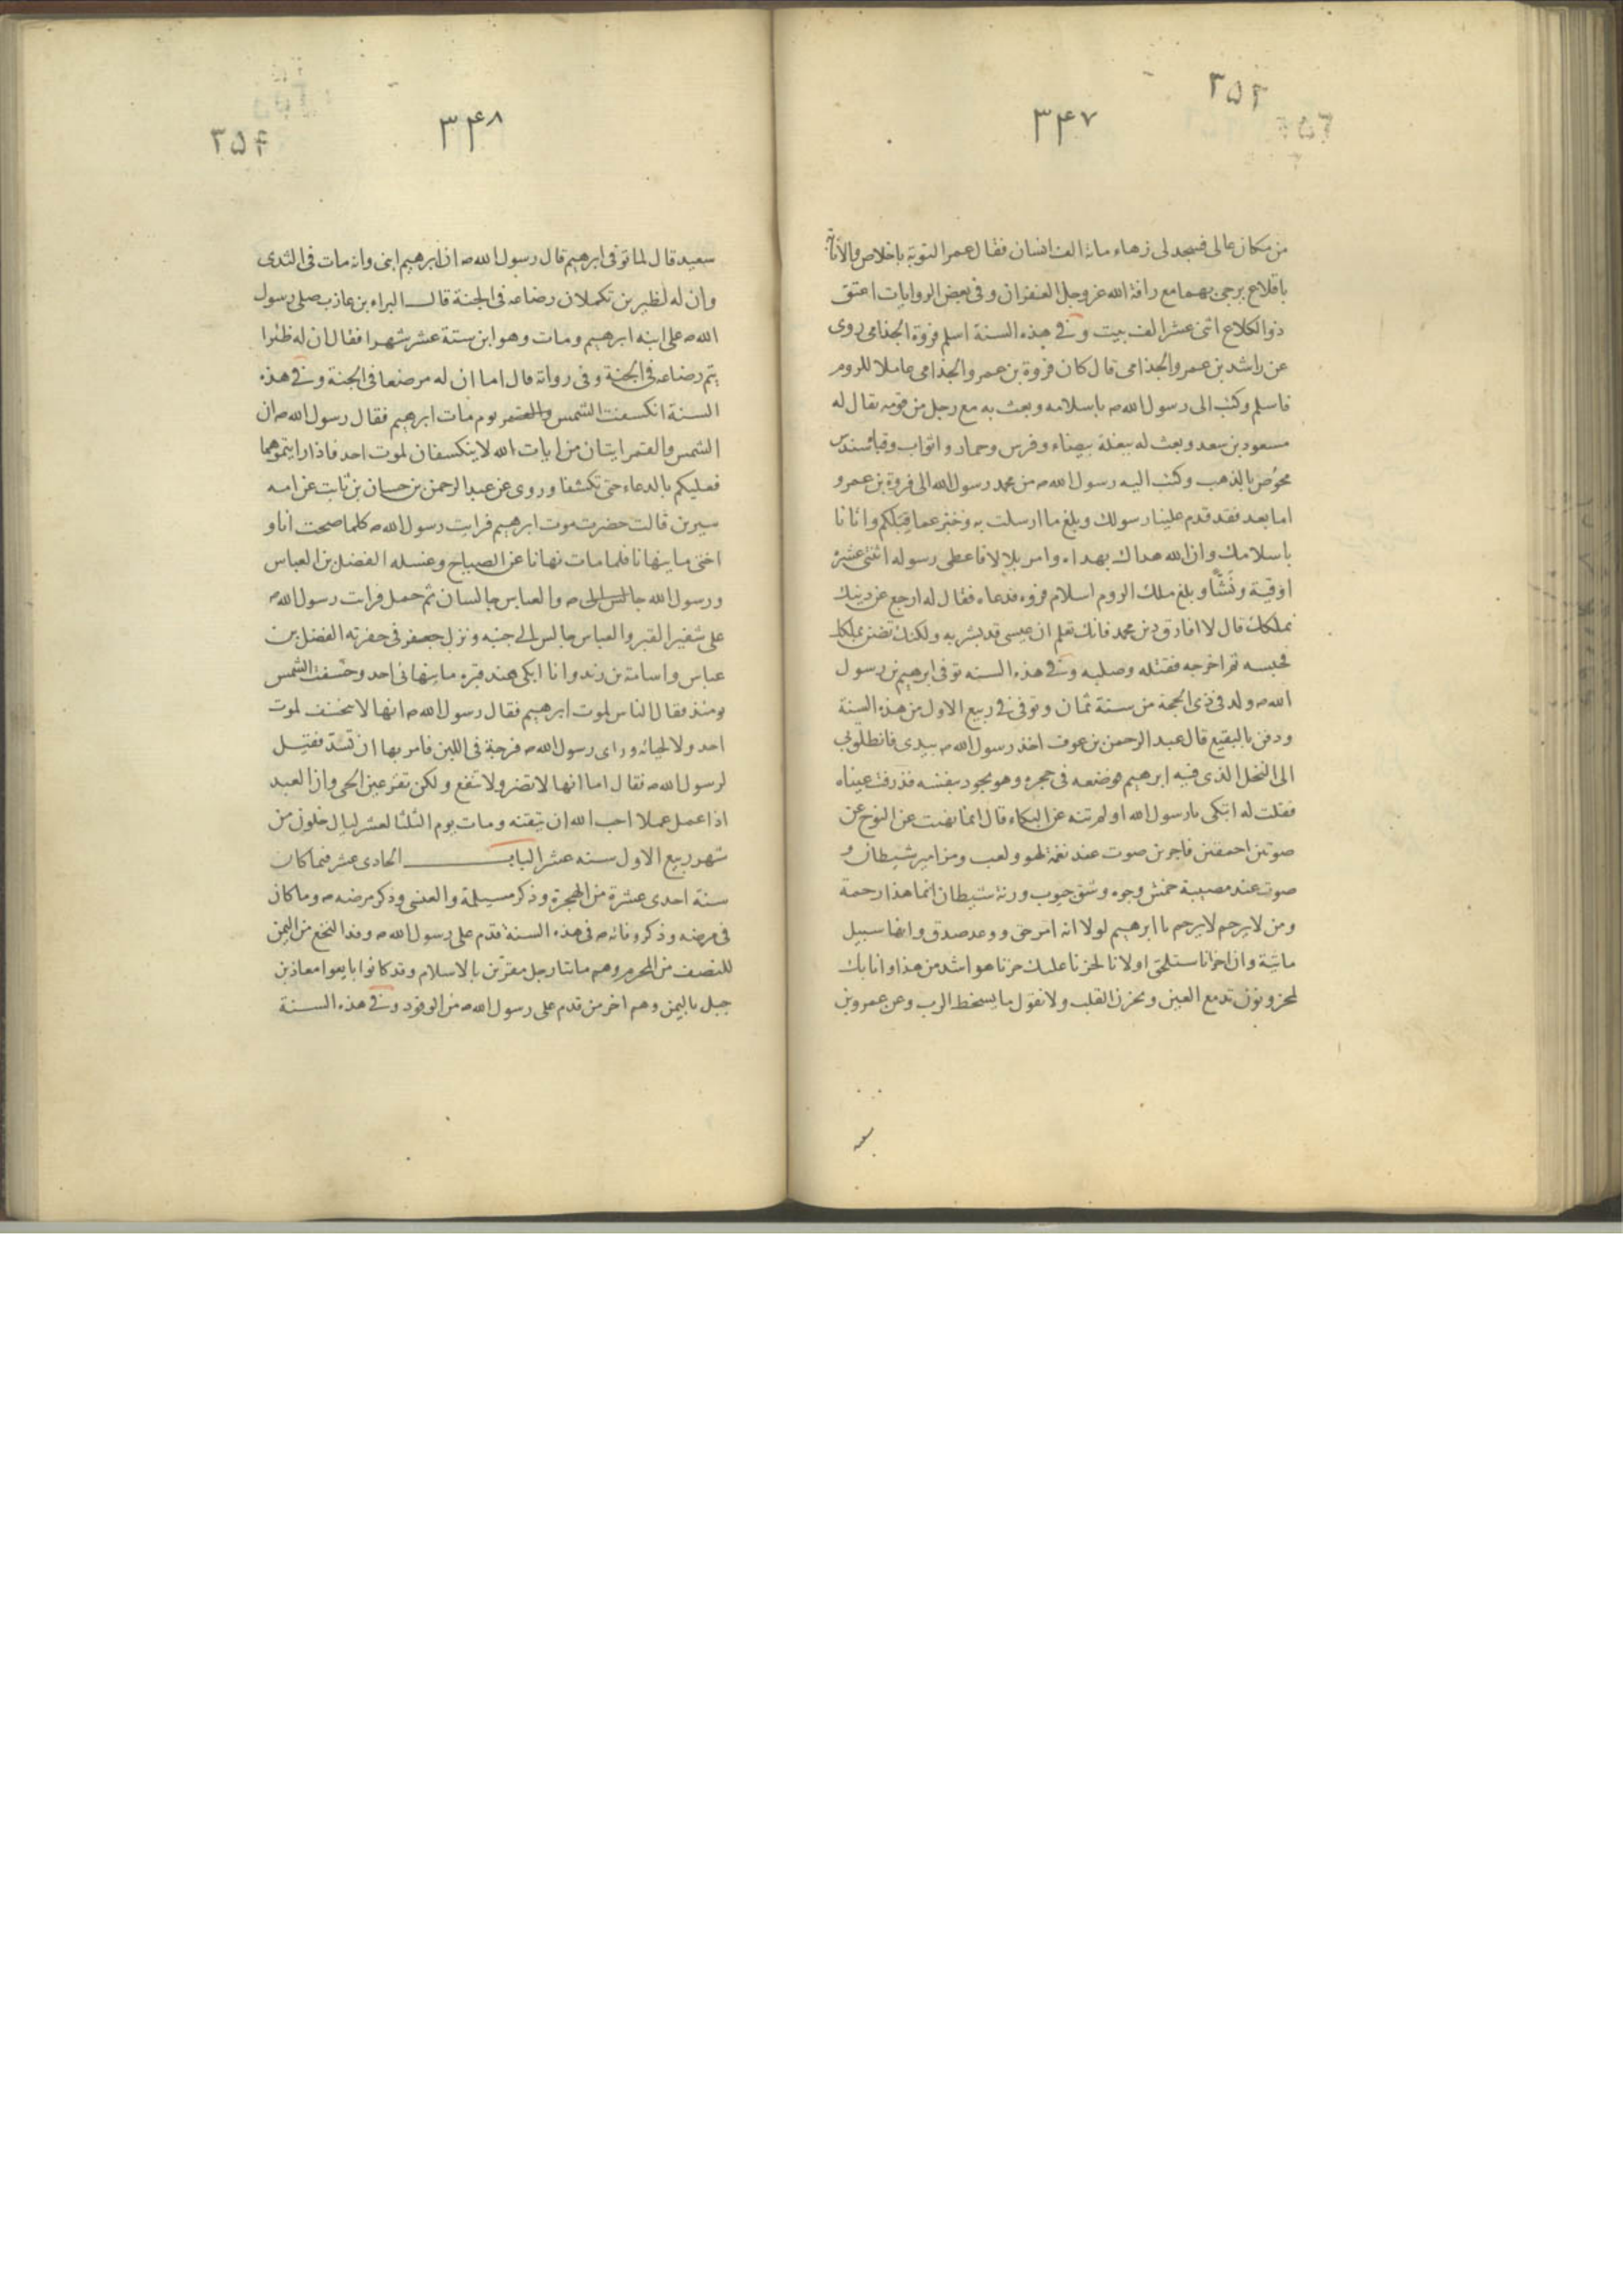 ٣٥٤
٣۴٧
من مكان عالى فسجد لى زهاء مائة الف انسان فقال عمر التوبة باخلاص والانابة
باقلاع يرجى بهما مع رافة الله عز وجل الغفران وفى بعض الروايات اعتق
ذو الكلاع اثنى عشر الف بيت وفى هذه السنة اسلم فروة الجذامى روى
عن راشد بن عمرو الجذامى قال كان فروة بن عمرو الجذامى عاملا للروم
فاسلم وكتب الى رسول الله ص باسلامه وبعث به مع رجل من قومه يقال له
مسعود بن سعد وبعث له ببغلة بيضاء وفرس وحمار واثواب وقباء سندس
مخوص بالذهب وكتب اليه رسول الله ص من محمد رسول الله الى فروة بن عمرو
اما بعد فقد قدم علينا رسولك وبلغ ما ارسلت به وخبر عما قبلكم واتانا
باسلامك وان الله هداك بهداه وامر بلالا فاعطى رسوله اثنتى عشرة
اوقية ونشا وبلغ ملك الروم اسلام فروه فدعاه فقال له ارجع عن دينك
نملكك قال لا افارق دين محمد فانك تعلم ان عيسى قد بشر به ولكنك تضن بملكك
فحبسه ثم اخرجه فقتله وصلبه وفى هذه السنه توفى ابرهيم بن رسول
الله ص ولد فى ذى الحجة من سنة ثمان وتوفى فى ربيع الاول من هذه السنة
ودفن بالبقيع قال عبد الرحمن بن عوف اخذ رسول الله ص بيدى فانطلق بى
الى النخل الذى فيه ابرهيم فوضعه فى حجره وهو يجود بنفسه فذرفت عيناه
فقلت له اتبكى يا رسول الله اولم تنه عن البكاء قال انما نهيت عن النوح عن
صوتين احمقين فاجرين صوت عند نغمة لهو ولعب ومزامير شيطان و
صوت عند مصيبة خمش وجوه وشق جيوب ورنة شيطان انما هذا رحمة
ومن لا يرحم لا يرحم يا ابرهيم لولا انه امر حق ووعد صدق وانها سبيل
ماتية وان اخرانا ستلحق اولانا لحزنا عليك حزنا هو اشد من هذا وانا بك
لمحزونون تدمع العين ويحزن القلب ولا نقول ما يسخط الرب وعن عمرو بن
٣٥۴
٣۴٨
سعيد قال لما توفى ابرهيم قال رسول الله ص ان ابرهيم ابنى وانه مات فى الثدى
وان له لظيرين تكملان رضاعه فى الجنة قال البراء بن عازب صلى رسول
الله ص على ابنه ابرهيم ومات وهو ابن ستة عشر شهرا فقال ان له ظئرا
يتم رضاعه فى الجنة وفى رواية قال اما ان له مرضعا فى الجنة وفى هذه
السنة انكسفت الشمس والقمر يوم مات ابرهيم فقال رسول الله ص ان
الشمس والقمر ايتان من ايات الله لا ينكسفان لموت احد فاذا رايتموهما
فعليكم بالدعاء حتى تكشفا وروى عن عبد الرحمن بن حسان بن ثابت عن امه
سيرين قالت حضرت موت ابرهيم فرايت رسول الله ص كلما صحت انا و
اختى ما ينهانا فلما مات نهانا عن الصياح وغسله الفضل بن العباس
ورسول الله جالس الى ص والعباس جالسان ثم حمل فرايت رسول الله ص
على شفير القبر والعباس جالس الى جنبه ونزل جعفر فى حفرته الفضل بن
عباس واسامة بن زيد وانا ابكى عند قبره ما ينهانى احد وخسفت الشمس
يومئذ فقال الناس لموت ابرهيم فقال رسول الله ص انها لا تخسف لموت
احد ولا لحياته وراى رسول الله ص فرجة فى اللبن فامر بها ان تسد فقيل
لرسول الله ص فقال اما انها لا تضر ولا تنفع ولكن تقر عين الحى وان العبد
اذا عمل عملا احب الله ان يتقنه ومات يوم الثلثا لعشر ليال خلون من
شهر ربيع الاول سنه عشر الباب الحادى عشر فيما كان
سنة احدى عشرة من الهجرة وذكر مسيلمة والعنسى وذكر مرضه ص وما كان
فى مرضه وذكر وفاته ص فى هذه السنة قدم على رسول الله ص وفد النخع من اليمن
للنصف من المحرم وهم مائتا رجل مقرين بالاسلام وقد كانوا بايعوا معاذ بن
جبل باليمن وهم اخر من قدم على رسول الله ص من الوفود وفى هذه السنة